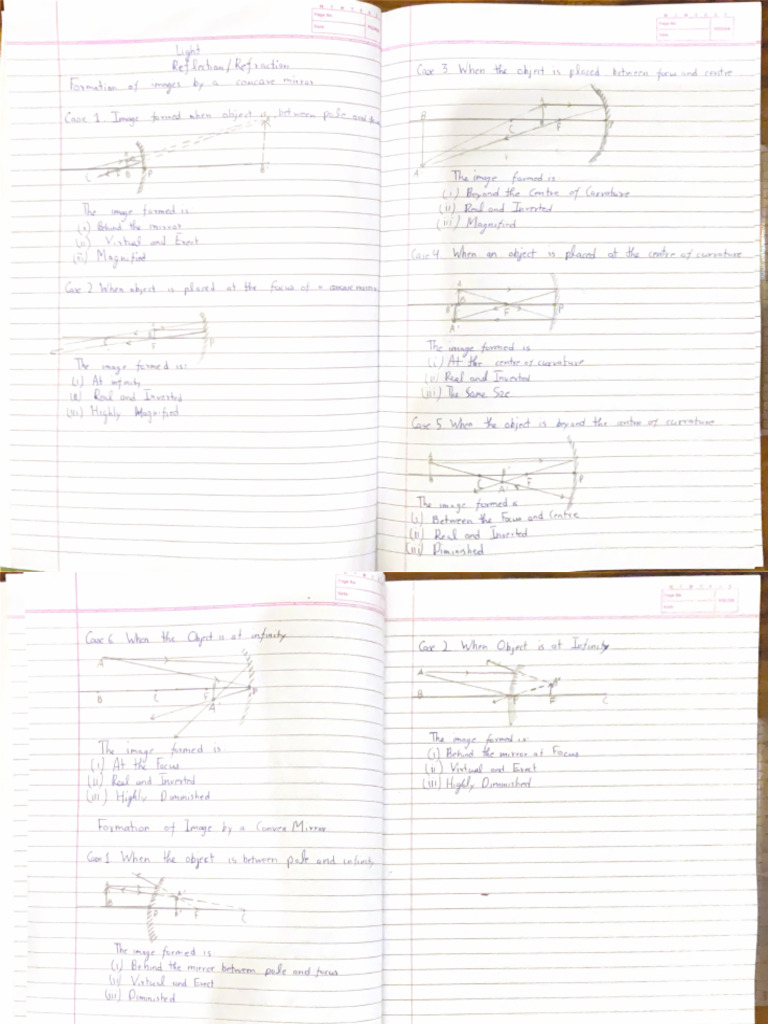 Light
Reflection/Refraction
Formation of images by a concave mirror
Case 1 Image formed when object is between pole and
The image formed is
(i) Behind the mirror
(ii) Virtual and Erect
(iii) Magnified
Case 2 When object is placed at the focus of a concave mirror
The image formed is:
(i) At infinity
(ii) Real and Inverted
(iii) Highly Magnified
Page No
Date
Case 3 When the object is placed between focus and centre
The image formed is
(i) Beyond the Centre of Curvature
(ii) Real and Inverted
(iii) Magnified
Case 4 When an object is placed at the centre of curvature
The image formed is
(i) At the centre of curvature
(ii) Real and Inverted
(iii) The Same Size
Case 5 When the object is beyond the centre of curvature
The image formed is
(i) Between the Focus and Centre
(ii) Real and Inverted
(iii) Diminished
Page No
Date
Case 6 When the Object is at infinity
A
B C F P
A'
The image formed is
(i) At the Focus
(ii) Real and Inverted
(iii) Highly Diminished
Formation of Image by a Convex Mirror
Case 1 When the object is between pole and infinity
The image formed is
(i) Behind the mirror between pole and focus
(ii) Virtual and Erect
(iii) Diminished
Page No
Date
Case 2 When Object is at Infinity
The image formed is:
(i) Behind the mirror at Focus
(ii) Virtual and Erect
(iii) Highly Diminished